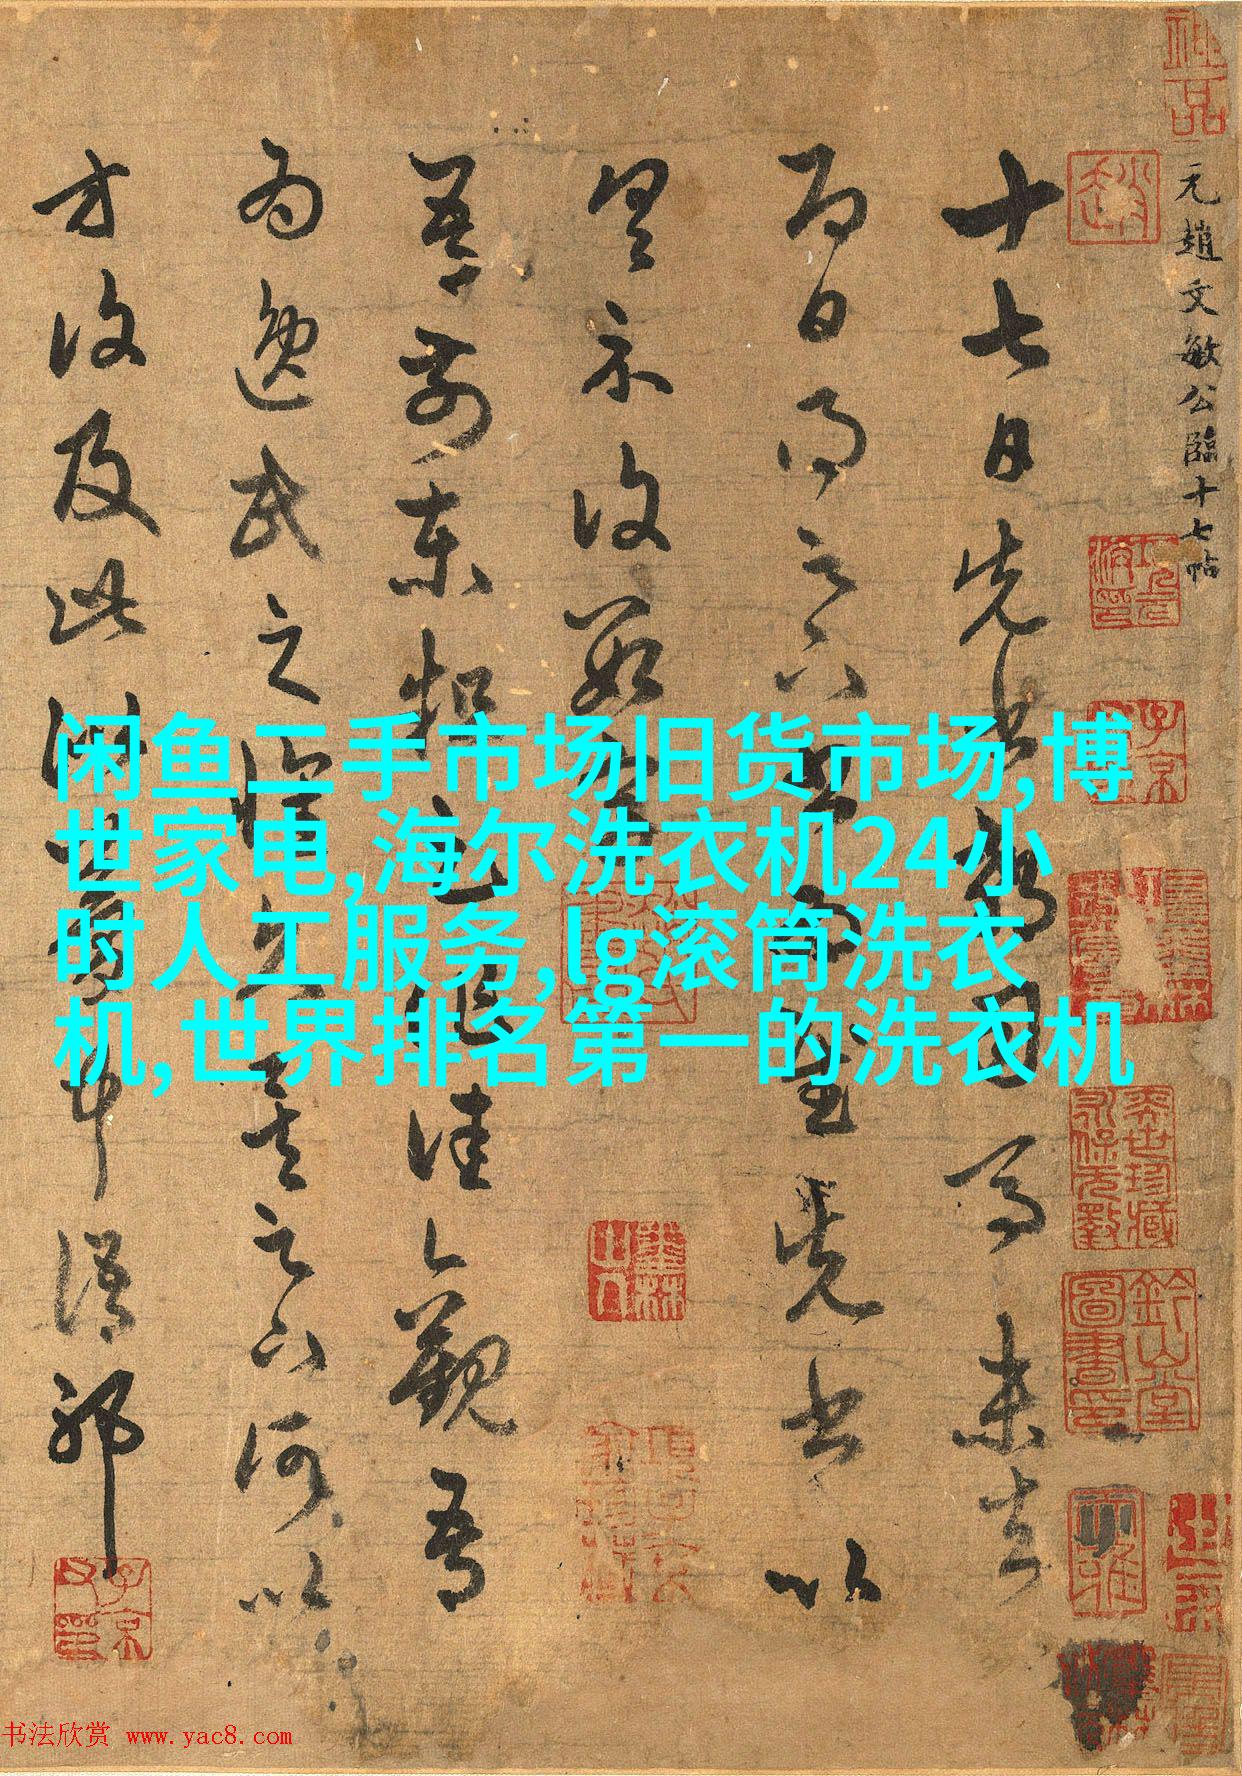 元趙文敏公臨十七帖
十七日先書郗司馬未去
即日得足下書為慰先書以
具示復數字
吾前東粗足作佳觀吾
為逸民之懷久矣足下何以
方復及此似夢中語耶
闲鱼二手市场旧货市场,博
世家电,海尔洗衣机24小
时人工服务,lg滚筒洗衣
机,世界排名第一的洗衣机
神品
趙
子京
奕世珍藏
永保無斁
鈐山堂
圖書印
书法欣赏 www.yac8.com